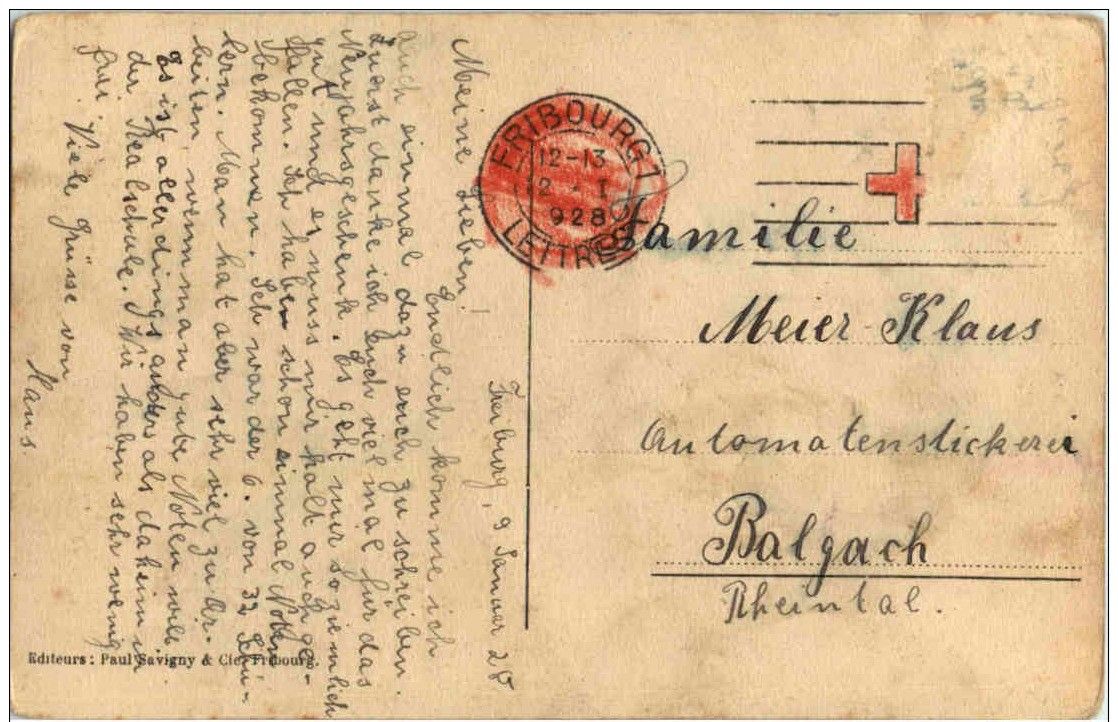 Freiburg, 9 Januar 28
Meine Lieben!
Endlich komme ich
auch einmal dazu euch zu schreiben.
Zuerst danke ich Euch viel mal für das
Neujahrsgeschenk. Es geht mir so ziemlich
gut und es muss mir halt auch ge-
fallen. Ich haben schon einmal Noten
bekommen. Ich war der 6. von 32 Schü-
lern. Man hat aber sehr viel zu Ar-
beiten, wenn man gute Noten will.
Es ist allerdings anders als daheim in
der Realschule. Wir haben sehr wenig
frei. Viele Grüsse von
Hans.
FRIBOURG 1
12-13
I
928
LETTRES
Familie
Meier-Klaus
Automatenstickerei
Balgach
Rheintal.
Editeurs: Paul Savigny & Cie, Fribourg.